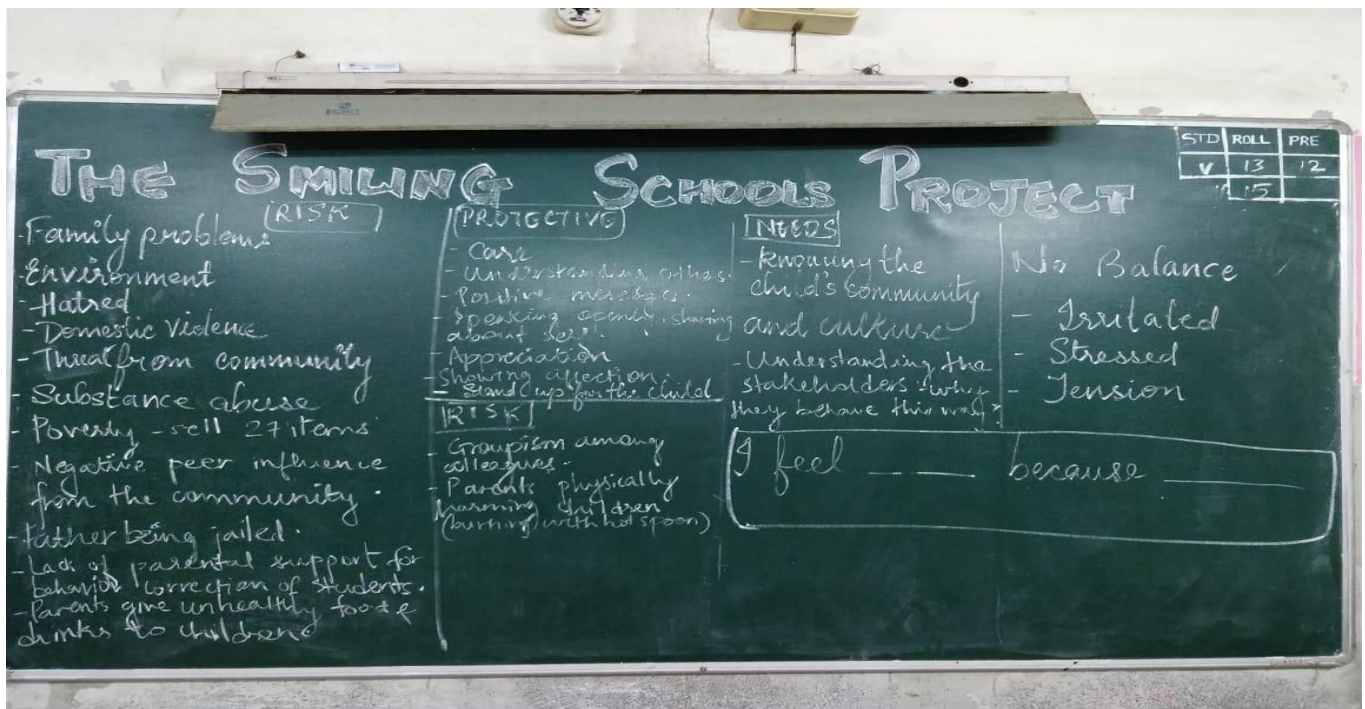 THE SMILING SCHOOLS PROJECT
STD ROLL PRE
V 13 12
15
RISK
- Family problems
- Environment
- Hatred
- Domestic Violence
- Threat from community
- Substance abuse
- Poverty - sell 27 items
- Negative peer influence
from the community.
- Father being jailed.
- Lack of parental support for
behavior correction of students.
- Parents give unhealthy food &
drinks to children
PROTECTIVE
- Care
- Understanding others.
- Positive messages.
- Speaking openly. sharing
about
- Appreciation
- Showing affection.
- Stand up for the child
RISK
- Groupism among
colleagues.
- Parents physically
harming children
(burning with hot spoon)
NEEDS
- Knowing the
child's community
and culture
- Understanding the
stakeholders - why
they behave this way?
No Balance
- Irritated
- Stressed
- Tension
I feel ____ ____ because ______